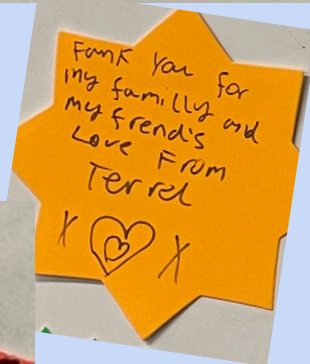 Fank you for
my familly and
my frend's
Love From
Terrel
X X